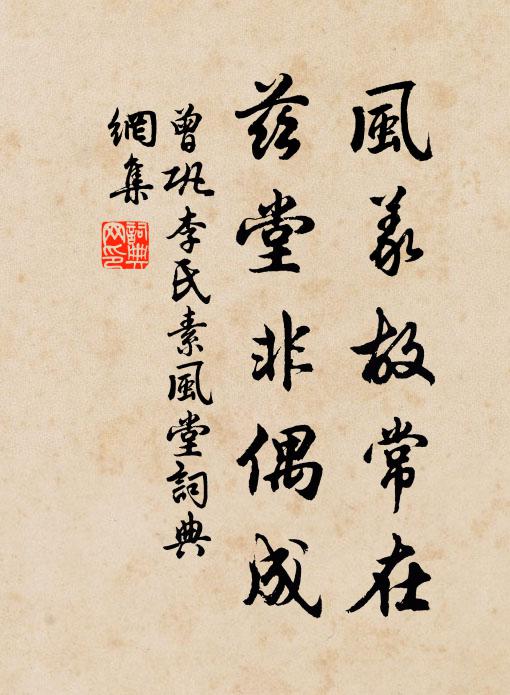 風義故常在
茲堂非偶成
曾巩李氏素風堂詞典
網集
詞典
网印